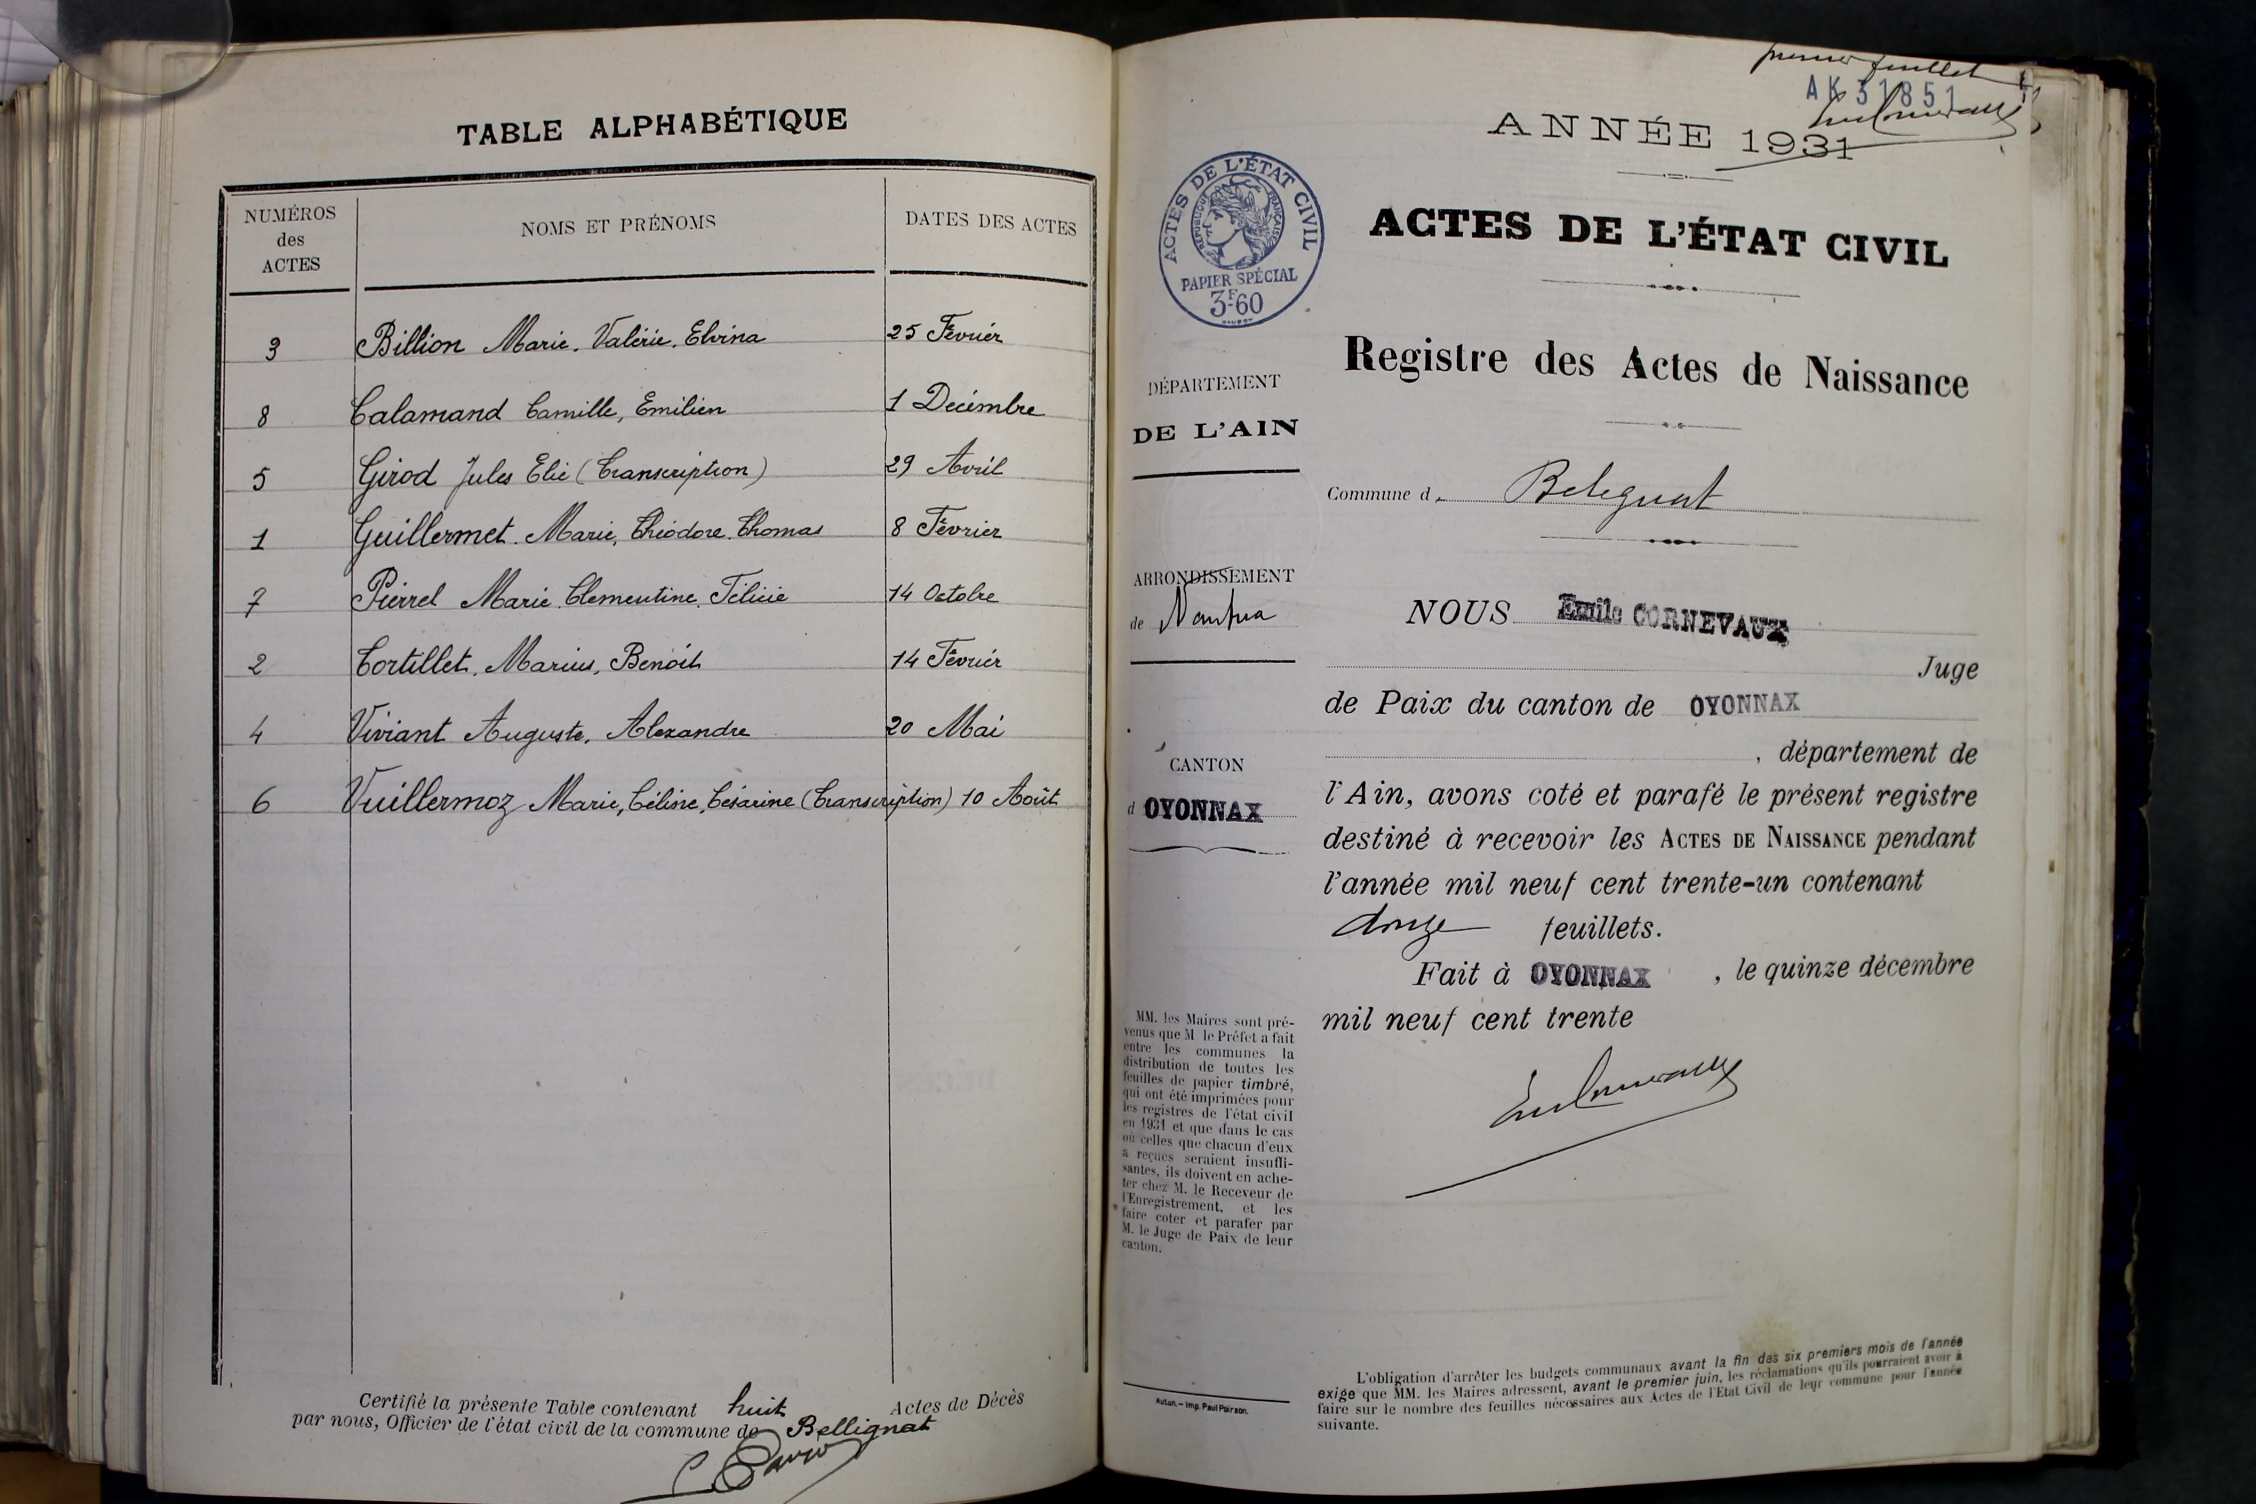 TABLE ALPHABÉTIQUE
NUMÉROS
des
ACTES
NOMS ET PRÉNOMS
DATES DES ACTES
3 Billion Marie, Valérie, Elvina 25 Février
8 Calamand Camille, Emilien 1 Décembre
5 Girod Jules Elie (Transcription) 29 Avril
1 Guillermet Marie, Théodore Thomas 8 Février
7 Pierrel Marie Clementine Félicie 14 Octobre
2 Tortillet, Marius, Benoît 14 Février
4 Viviant Auguste, Alexandre 20 Mai
6 Vuillermoz Marie, Céline, Césarine (Transcription) 10 Août
Certifié la présente Table contenant huit Actes de Décès
par nous, Officier de l'état civil de la commune de Bellignat
premier feuillet
AK 31851
ANNÉE 1931
ACTES DE L'ÉTAT CIVIL
RÉPUBLIQUE FRANÇAISE
PAPIER SPÉCIAL
3F60
ACTES DE L'ÉTAT CIVIL
Registre des Actes de Naissance
DÉPARTEMENT
DE L'AIN
Commune d Belignat
ARRONDISSEMENT
de Nantua
CANTON
d OYONNAX
NOUS Emile CORNEVAUX
Juge
de Paix du canton de OYONNAX
, département de
l'Ain, avons coté et parafé le présent registre
destiné à recevoir les ACTES DE NAISSANCE pendant
l'année mil neuf cent trente-un contenant
douze feuillets.
Fait à OYONNAX , le quinze décembre
mil neuf cent trente
MM. les Maires sont pré-
venus que M le Préfet a fait
entre les communes la
distribution de toutes les
feuilles de papier timbré,
qui ont été imprimées pour
les registres de l'état civil
en 1931 et que dans le cas
où celles que chacun d'eux
a reçues seraient insuffi-
santes, ils doivent en ache-
ter chez M. le Receveur de
l'Enregistrement, et les
faire coter et parafer par
M. le Juge de Paix de leur
canton.
Autun. — Imp. Paul Poirson.
L'obligation d'arrêter les budgets communaux avant la fin des six premiers mois de l'année
exige que MM. les Maires adressent, avant le premier juin, les réclamations qu'ils pourraient avoir à
faire sur le nombre des feuilles nécessaires aux Actes de l'Etat Civil de leur commune pour l'année
suivante.